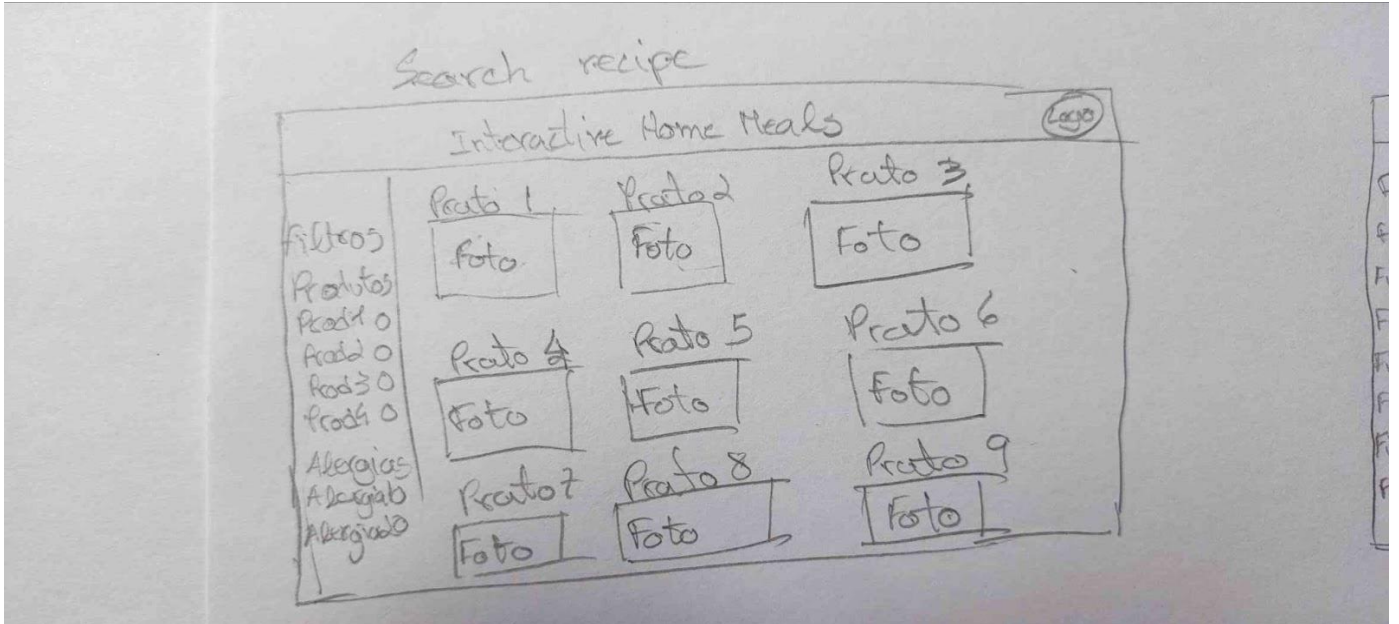 Search recipe
Interactive Home Meals
Logo
Filtros
Produtos
Prod1 O
Prod2 O
Prod3 O
Prod4 O
Alergias
Prato 1
Foto
Prato 2
Foto
Prato 3
Foto
Prato 4
Foto
Prato 5
Foto
Prato 6
Foto
Prato 7
Foto
Prato 8
Foto
Prato 9
Foto